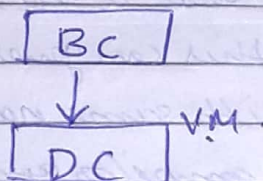 BC
V.M
DC